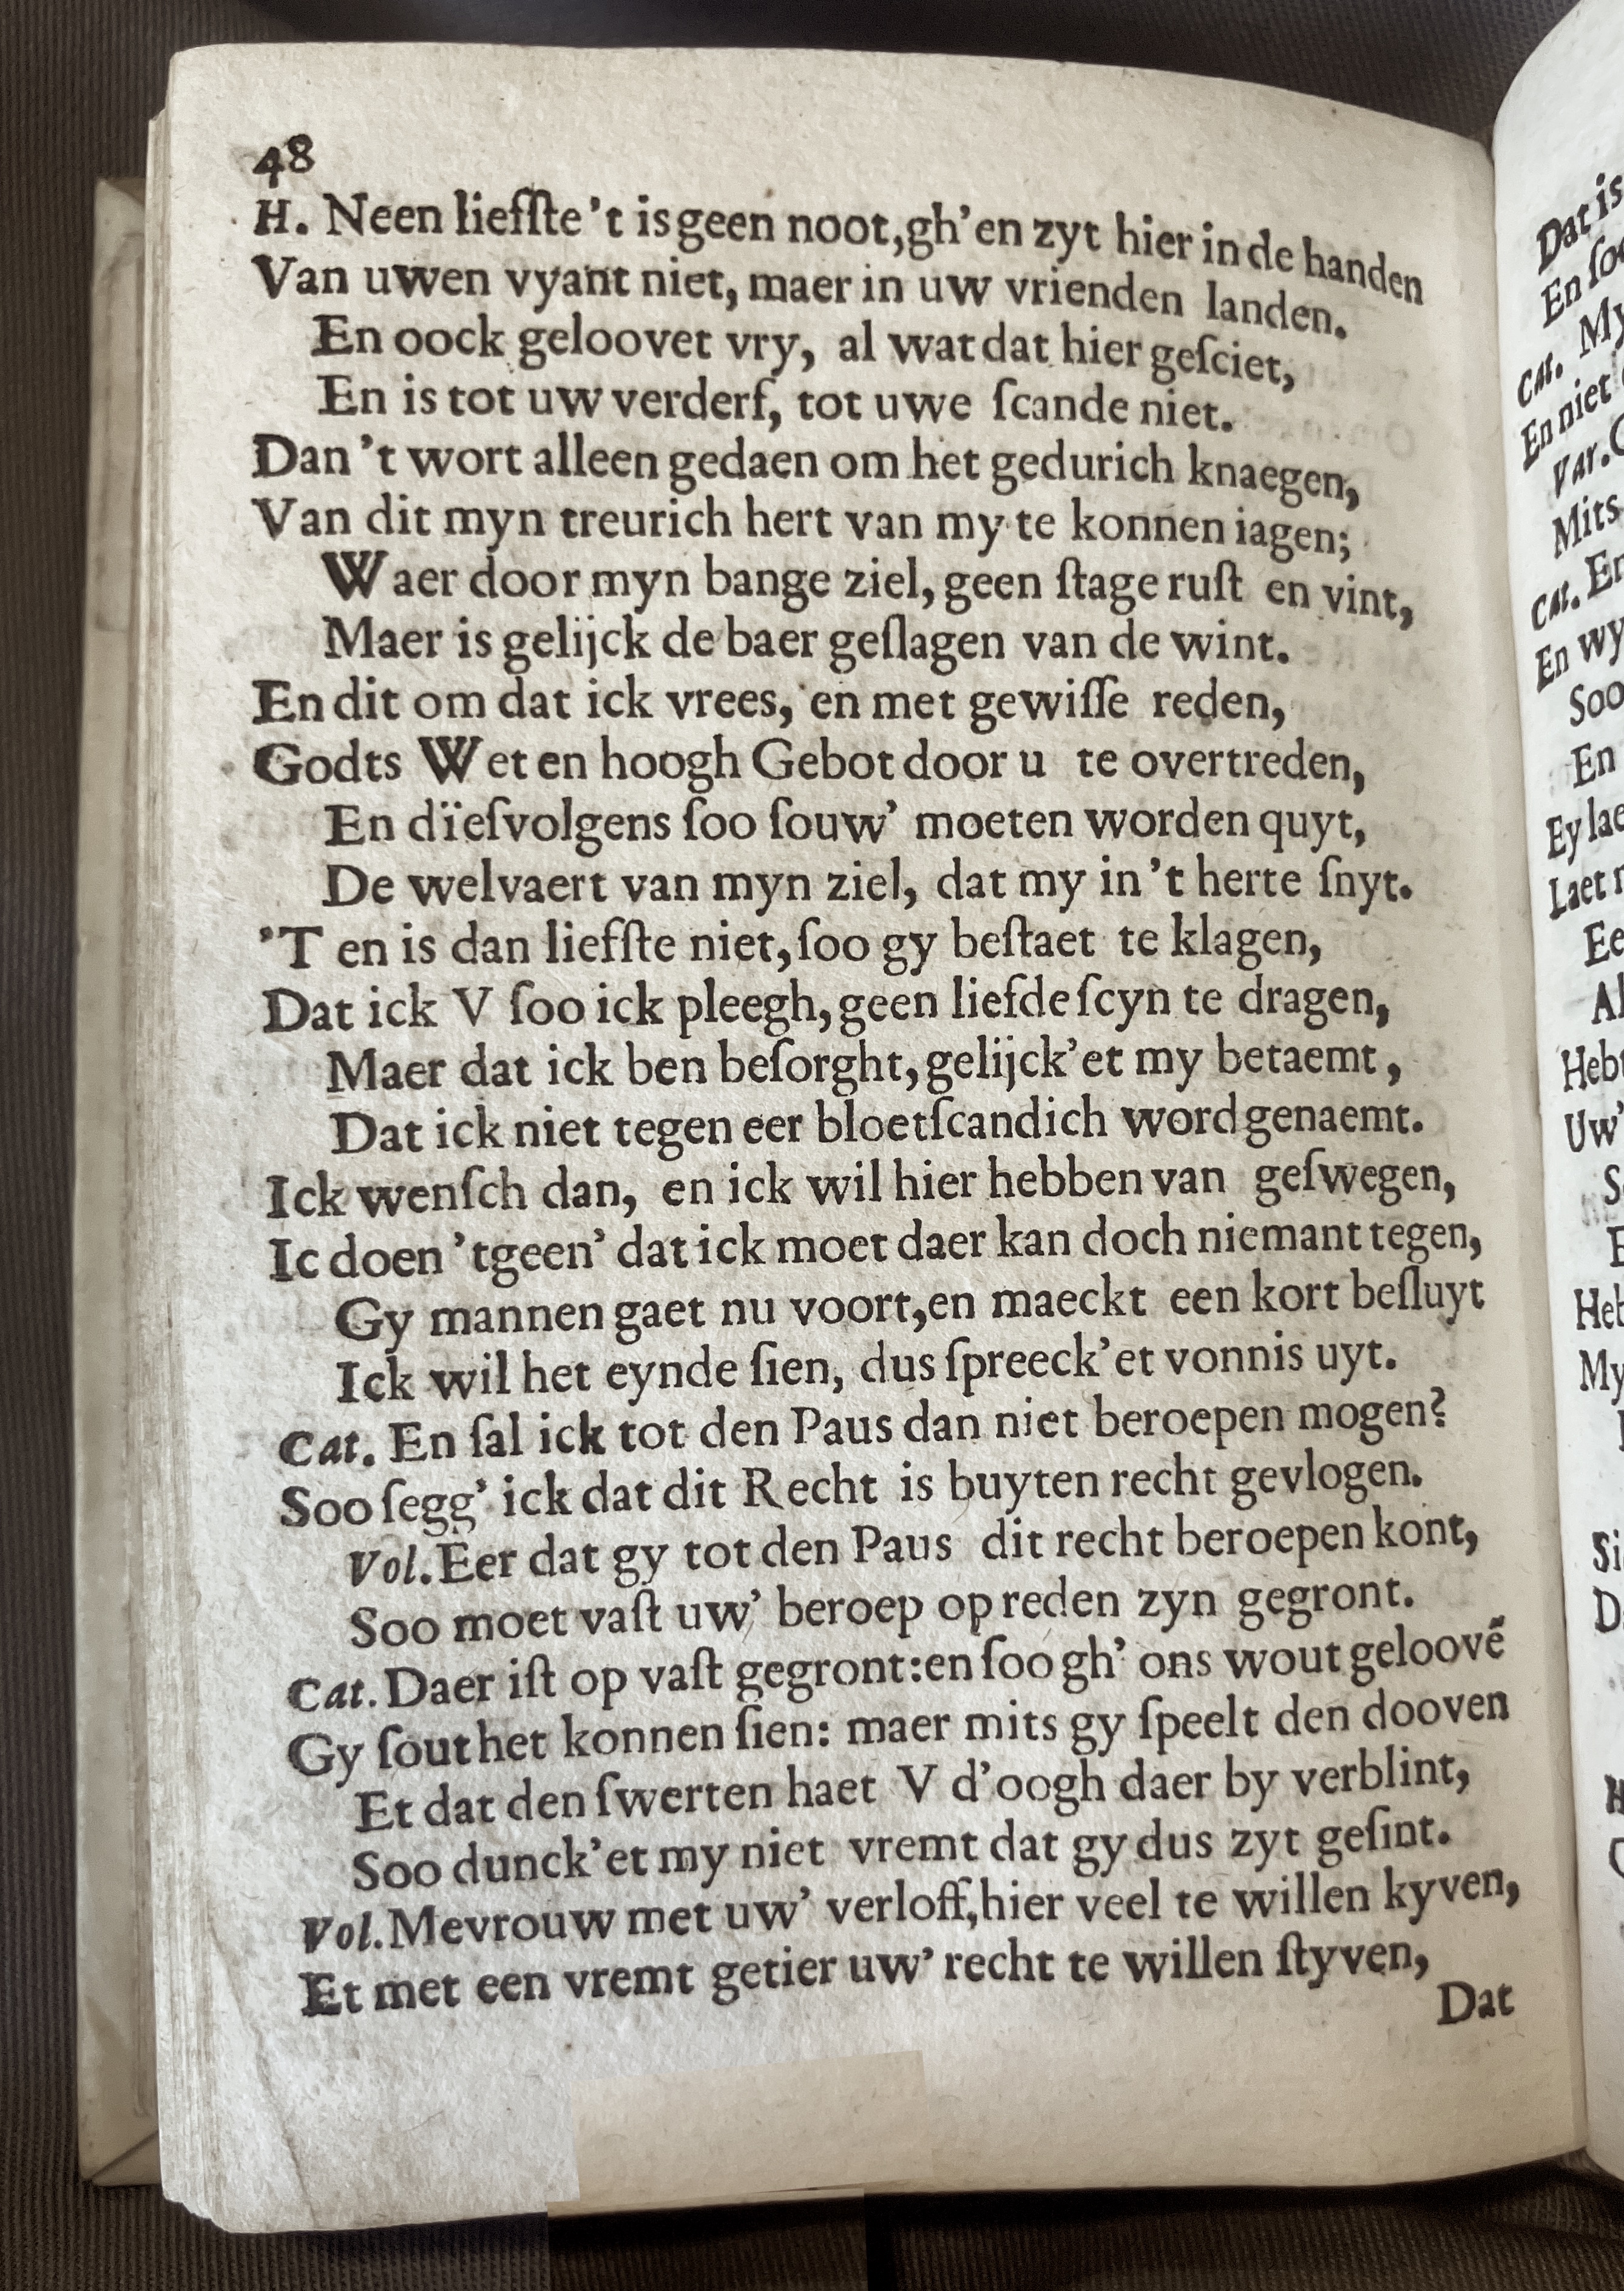 48
H. Neen liefſte 't is geen noot, gh' en zyt hier in de handen
Van uwen vyant niet, maer in uw vrienden landen.
En oock geloovet vry, al wat dat hier geſciet,
En is tot uw verderf, tot uwe ſcande niet.
Dan 't wort alleen gedaen om het gedurich knaegen,
Van dit myn treurich hert van my te konnen iagen;
Waer door myn bange ziel, geen ſtage ruſt en vint,
Maer is gelijck de baer geſlagen van de wint.
En dit om dat ick vrees, en met gewiſſe reden,
Godts Wet en hoogh Gebot door u te overtreden,
En dïeſvolgens ſoo ſouw' moeten worden quyt,
De welvaert van myn ziel, dat my in 't herte ſnyt.
'T en is dan liefſte niet, ſoo gy beſtaet te klagen,
Dat ick V ſoo ick pleegh, geen liefde ſcyn te dragen,
Maer dat ick ben beſorght, gelijck' et my betaemt,
Dat ick niet tegen eer bloetſcandich word genaemt.
Ick wenſch dan, en ick wil hier hebben van geſwegen,
Ic doen 'tgeen' dat ick moet daer kan doch niemant tegen,
Gy mannen gaet nu voort, en maeckt een kort beſluyt
Ick wil het eynde ſien, dus ſpreeck' et vonnis uyt.
Cat. En ſal ick tot den Paus dan niet beroepen mogen?
Soo ſegg' ick dat dit Recht is buyten recht gevlogen.
Vol. Eer dat gy tot den Paus dit recht beroepen kont,
Soo moet vaſt uw' beroep op reden zyn gegront.
Cat. Daer iſt op vaſt gegront: en ſoo gh' ons wout geloovē
Gy ſout het konnen ſien: maer mits gy ſpeelt den dooven
Et dat den ſwerten haet V d'oogh daer by verblint,
Soo dunck' et my niet vremt dat gy dus zyt geſint.
Vol. Mevrouw met uw' verloff, hier veel te willen kyven,
Et met een vremt getier uw' recht te willen ſtyven,
Dat
Dat is
En
Cat. My
En niet
Var.
Mits
Cat. En
En wy
Soo
En
Ey lae
Laet
Ee
Al
Hebt
Uw'
My